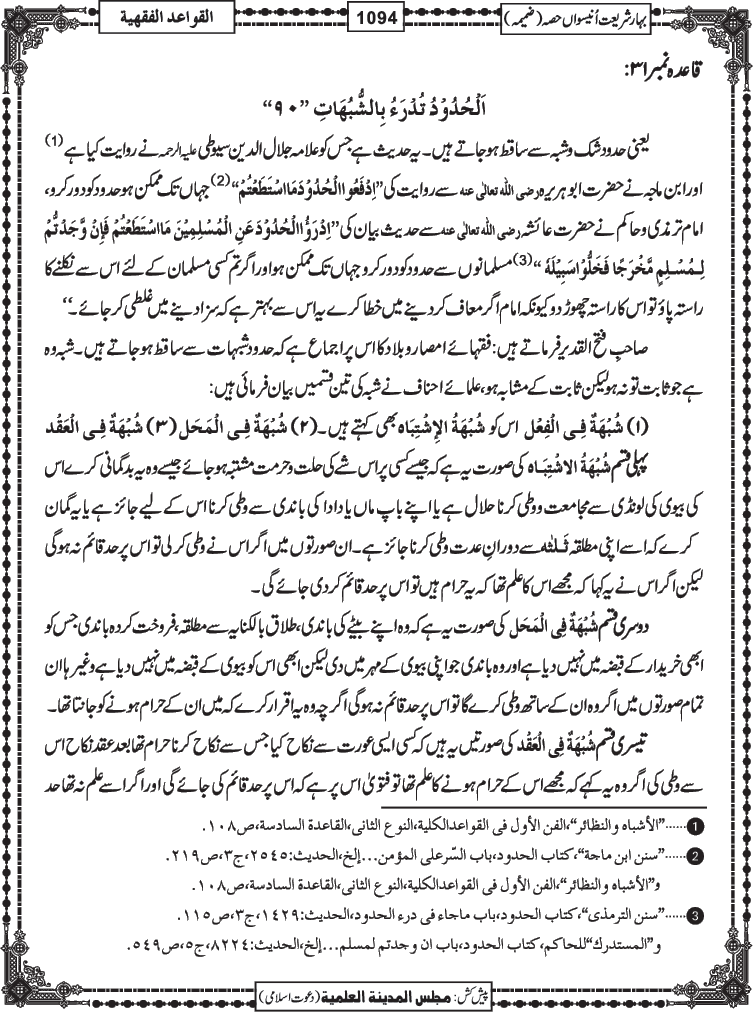 بہارِ شریعت اُنیسواں حصہ (ضمیمہ)
1094
القواعد الفقهية
قاعدہ نمبر ۳۱:
اَلْحُدُوْدُ تُدْرَءُ بِالشُّبُهَاتِ ”۹۰“
یعنی حدود شک وشبہ سے ساقط ہوجاتے ہیں۔ یہ حدیث ہے جس کو علامہ جلال الدین سیوطی علیہ الرحمہ نے روایت کیا ہے (1)
اور ابن ماجہ نے حضرت ابوہریرہ رضی اللہ تعالی عنہ سے روایت کی ”اِدْفَعُوا الْحُدُوْدَ مَا اسْتَطَعْتُمْ“ (2) جہاں تک ممکن ہو حدود کو دور کرو،
امام ترمذی وحاکم نے حضرت عائشہ رضی اللہ تعالی عنہ سے حدیث بیان کی ”اِدْرَؤُا الْحُدُوْدَ عَنِ الْمُسْلِمِيْنَ مَا اسْتَطَعْتُمْ فَاِنْ وَّجَدْتُّمْ
لِمُسْلِمٍ مَّخْرَجًا فَخَلُّوْا سَبِيْلَهٗ“ (3) مسلمانوں سے حدود کو دور کرو جہاں تک ممکن ہو اور اگر تم کسی مسلمان کے لئے اس سے نکلنے کا
راستہ پاؤ تو اس کا راستہ چھوڑ دو کیونکہ امام اگر معاف کردینے میں خطا کرے یہ اس سے بہتر ہے کہ سزا دینے میں غلطی کر جائے۔“
صاحبِ فتح القدیر فرماتے ہیں: فقہائے امصار وبلاد کا اس پر اجماع ہے کہ حدود شبہات سے ساقط ہوجاتے ہیں۔ شبہ وہ
ہے جو ثابت تو نہ ہو لیکن ثابت کے مشابہ ہو، علمائے احناف نے شبہ کی تین قسمیں بیان فرمائی ہیں:
(۱) شُبْهَةٌ فِی الْفِعْل اس کو شُبْهَةُ الْاِشْتِبَاه بھی کہتے ہیں۔ (۲) شُبْهَةٌ فِی الْمَحَل (۳) شُبْهَةٌ فِی الْعَقْد
پہلی قسم شُبْهَةُ الاشْتِبَاه کی صورت یہ ہے کہ جیسے کسی پر اس شے کی حلت وحرمت مشتبہ ہوجائے جیسے وہ یہ بدگمانی کرے اس
کی بیوی کی لونڈی سے مجامعت ووطی کرنا حلال ہے یا اپنے باپ ماں یا دادا کی باندی سے وطی کرنا اس کے لیے جائز ہے یا یہ گمان
کرے کہ اسے اپنی مطلقہ ثلٰثہ سے دورانِ عدت وطی کرنا جائز ہے۔ ان صورتوں میں اگر اس نے وطی کرلی تو اس پر حد قائم نہ ہوگی
لیکن اگر اس نے یہ کہا کہ مجھے اس کا علم تھا کہ یہ حرام ہیں تو اس پر حد قائم کردی جائے گی۔
دوسری قسم شُبْهَةٌ فِی الْمَحَل کی صورت یہ ہے کہ وہ اپنے بیٹے کی باندی، طلاق بالکنایہ سے مطلقہ، فروخت کردہ باندی جس کو
ابھی خریدار کے قبضہ میں نہیں دیا ہے اور وہ باندی جو اپنی بیوی کے مہر میں دی لیکن ابھی اس کو بیوی کے قبضہ میں نہیں دیا ہے وغیرہا ان
تمام صورتوں میں اگر وہ ان کے ساتھ وطی کرے گا تو اس پر حد قائم نہ ہوگی اگرچہ وہ یہ اقرار کرے کہ میں ان کے حرام ہونے کو جانتا تھا۔
تیسری قسم شُبْهَةٌ فِی الْعَقْد کی صورتیں یہ ہیں کہ کسی ایسی عورت سے نکاح کیا جس سے نکاح کرنا حرام تھا بعد عقد نکاح اس
سے وطی کی اگر وہ یہ کہے کہ مجھے اس کے حرام ہونے کا علم تھا تو فتویٰ اس پر ہے کہ اس پر حد قائم کی جائے گی اور اگر اسے علم نہ تھا حد
1......”الأشباه والنظائر“، الفن الأول فی القواعد الكلية، النوع الثانی، القاعدة السادسة، ص۱۰۸.
2......”سنن ابن ماجة“، كتاب الحدود، باب السّتر علی المؤمن...إلخ، الحديث:۲۵۴۵، ج۳، ص۲۱۹.
و”الأشباه والنظائر، الفن الأول فی القواعد الكلية، النوع الثانی، القاعدة السادسة، ص۱۰۸.
3......”سنن الترمذی“، كتاب الحدود، باب ماجاء فی درء الحدود، الحديث:۱۴۲۹، ج۳، ص۱۱۵.
و”المستدرك“ للحاكم، كتاب الحدود، باب ان وجدتم لمسلم...إلخ، الحديث:۸۲۲۴، ج۵، ص۵۴۹.
پیش کش: مجلس المدينة العلمية (دعوت اسلامی)